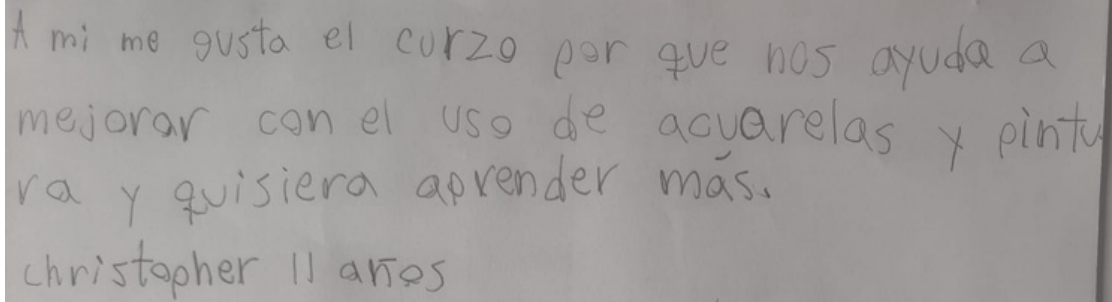 A mi me gusta el curzo por que nos ayuda a
mejorar con el uso de acuarelas y pintu
ra y quisiera aprender más.
christopher 11 años